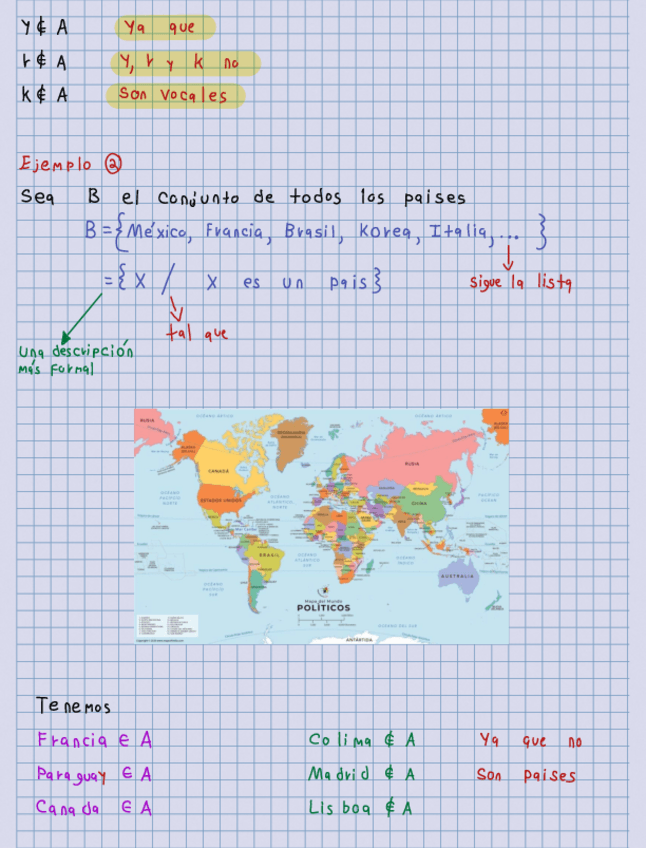 y ∉ A Ya que
r ∉ A y, r y k no
k ∉ A Son vocales
Ejemplo ②
Sea B el conjunto de todos los paises
B = {México, Francia, Brasil, Korea, Italia, ... }
= { X / X es un pais} sigue la lista
tal que
Una descripción
más formal
OCÉANO ÁRTICO
OCÉANO ÁRTICO
RUSIA
RUSIA
CANADÁ
ESTADOS UNIDOS
CHINA
OCÉANO PACÍFICO NORTE
OCÉANO ATLÁNTICO NORTE
BRASIL
OCÉANO ATLÁNTICO SUR
OCÉANO ÍNDICO
AUSTRALIA
OCÉANO PACÍFICO SUR
Mapa del Mundo
POLÍTICOS
OCÉANO DEL SUR
ANTÁRTIDA
Tenemos
Francia ∈ A Colima ∉ A Ya que no
Paraguay ∈ A Madrid ∉ A Son paises
Canada ∈ A Lisboa ∉ A